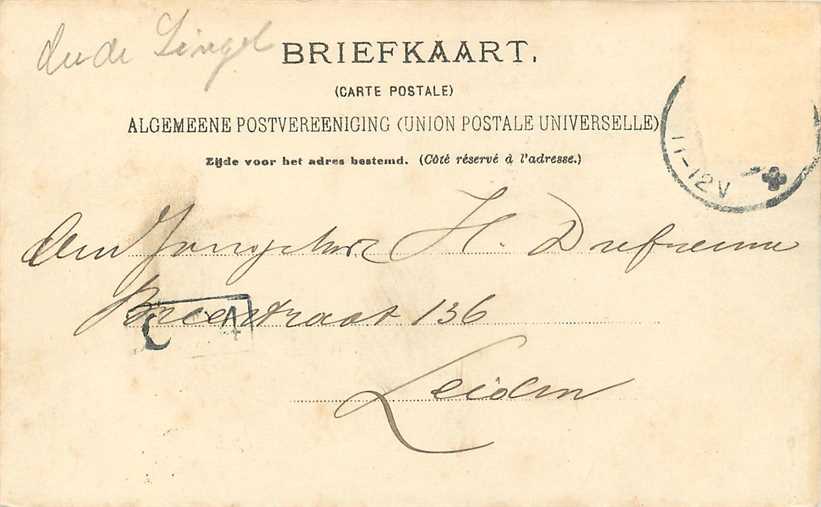 Oude Singel
BRIEFKAART.
(CARTE POSTALE)
ALGEMEENE POSTVEREENIGING (UNION POSTALE UNIVERSELLE)
Zijde voor het adres bestemd. (Côté réservé à l'adresse.)
11-12V
den Jongeheer H. Dufrenne
Breestraat 136
4
Leiden